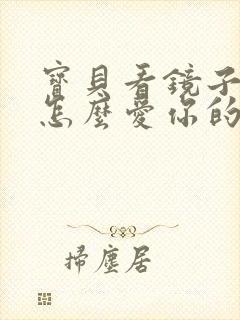 寶貝看鏡子
怎麼愛你的
掃塵居